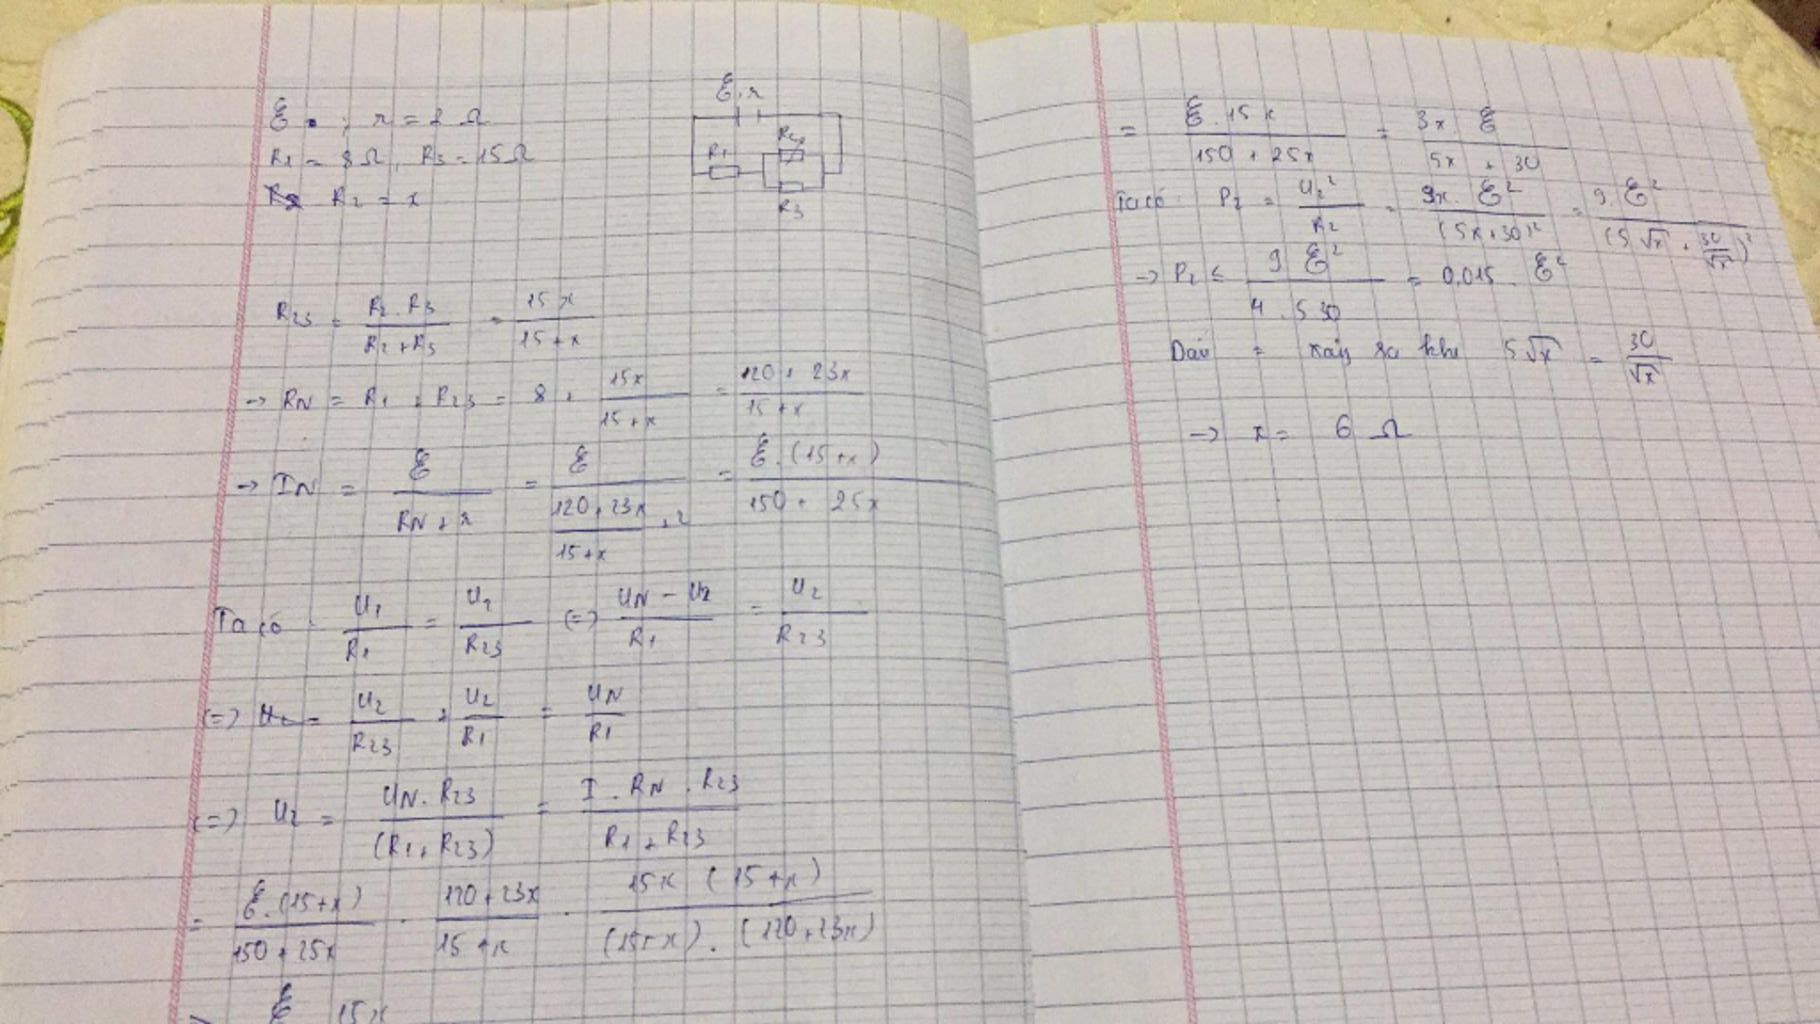 ℰ ; r = 2 Ω
R1 = 8 Ω, R3 = 15 Ω
R2 = x
ℰ, r
R1
R2
R3
R23 = R2 . R3 / R2 + R3 = 15 x / 15 + x
→ RN = R1 + R23 = 8 + 15x / 15 + x = 120 + 23x / 15 + x
→ IN = ℰ / RN + r = ℰ / (120 + 23x / 15 + x + 2) = ℰ . (15 + x) / 150 + 25x
Ta có U1 / R1 = U2 / R23 (=) UN - U2 / R1 = U2 / R23
(=) U2 / R23 + U2 / R1 = UN / R1
(=) U2 = UN . R23 / (R1 + R23) = I . RN . R23 / R1 + R23
= ℰ . (15 + x) / 150 + 25x . 120 + 23x / 15 + x . 15x (15 + x) / (15 + x) . (120 + 23x)
ℰ 15x
= ℰ . 15x / 150 + 25x = 3x . ℰ / 5x + 30
Ta có P2 = U2² / R2 = 9x . ℰ² / (5x + 30)² = 9 . ℰ² / (5√x + 30/√x)²
→ P2 ≤ 9 ℰ² / 4 . 5 30 = 0,015 . ℰ²
Dấu = xảy ra khi 5√x = 30/√x
→ x = 6 Ω